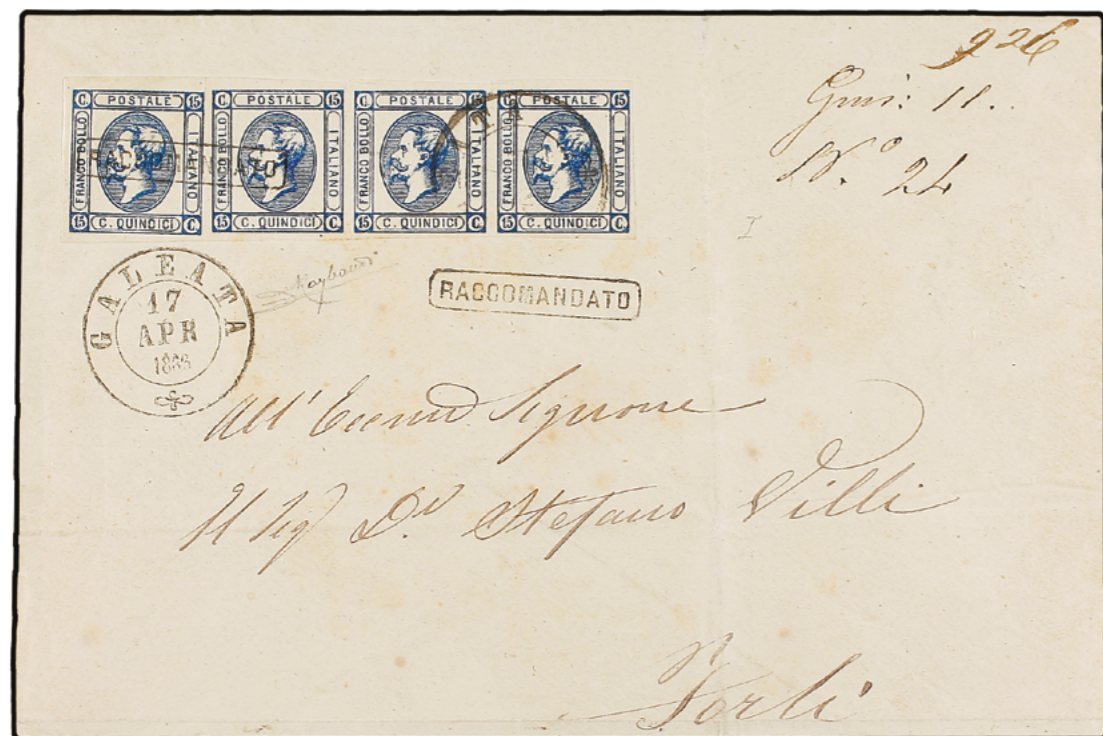 926
Gmi: 11.
N.º 24
C. POSTALE 15
FRANCO BOLLO
ITALIANO
15 C. QUINDICI C.
C. POSTALE 15
FRANCO BOLLO
ITALIANO
15 C. QUINDICI C.
C. POSTALE 15
FRANCO BOLLO
ITALIANO
15 C. QUINDICI C.
C. POSTALE 15
FRANCO BOLLO
ITALIANO
15 C. QUINDICI C.
RACCOMANDATO
GALEATA
17
APR
1863
RACCOMANDATO
All' Eccmo Signore
Il Sig Dr. Stefano Villi
Forlì